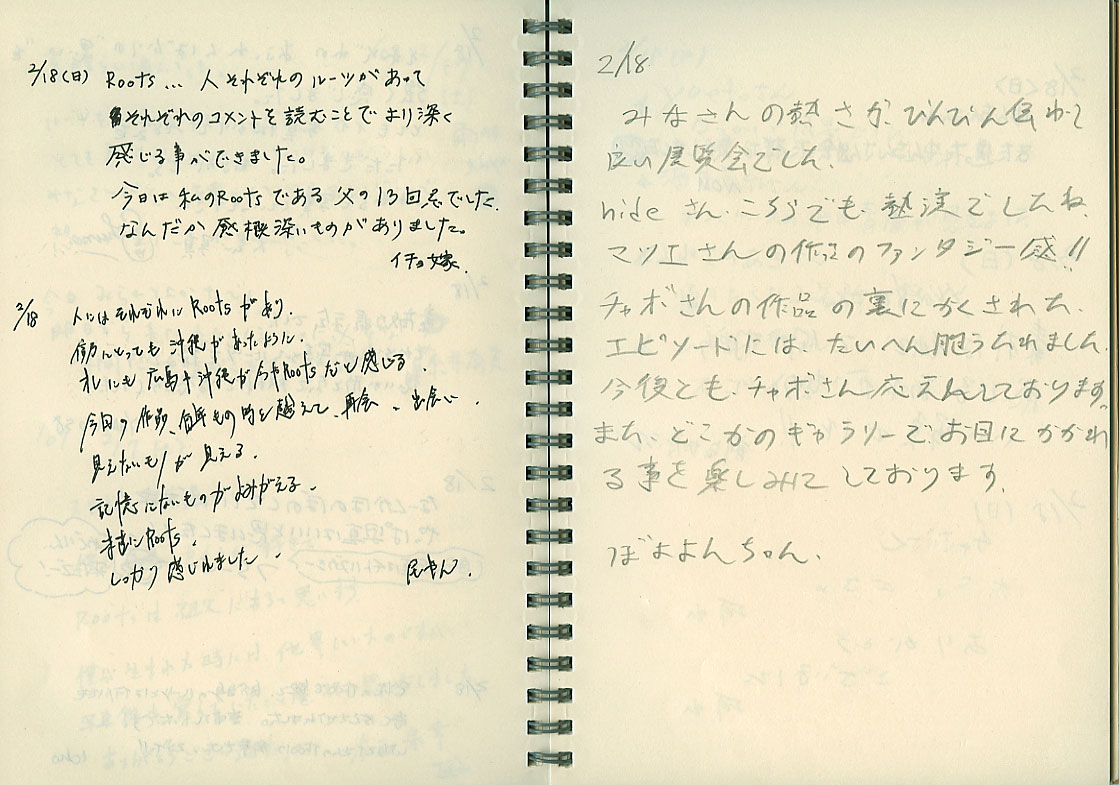 2/18(日) Roots… 人それぞれのルーツがあって
それぞれのコメントを読むことでより深く
感じる事ができました。
今日は私のRootsである父の13回忌でした。
なんだか感慨深いものがありました。
イチョ嫁.
2/18 人にはそれぞれに Rootsがあり.
にとっても 沖縄があったように.
オレにも 広島+沖縄が Rootsだと感じる.
今回の作品、何年もの時を越えて、再会、出会い.
見えないものが見える.
記憶にないものがよみがえる.
まさにRoots.
しっかり感じれました.
2/18
みなさんの熱さが、びんびん伝わって
良い展覧会でした.
hideさん.こちらでも、熱演でしたね.
マツエさんの作品のファンタジー感!!
チャボさんの作品の裏にかくされた.
エピソードには、たいへん胆うたれました.
今後とも、チャボさん応えんしております。
また、どこかのギャラリーでお目にかかれ
る事を楽しみにしております.
ぼよよんちゃん.